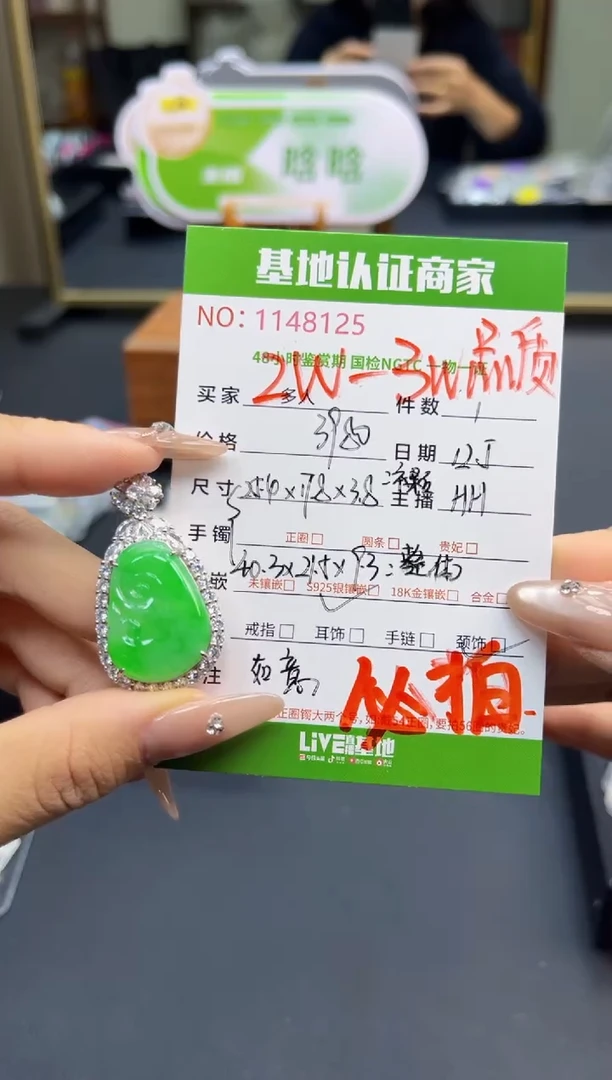 晗晗
基地认证商家
NO: 1148125
48小时鉴赏期 国检NGTC 一物一证
2W-3W品质
买家 多人 件数 1
价格 3980 日期 12.5
尺寸 25.4×17.8×3.8:裸石 主播 HH
手镯 正圈□ 圆条□ 贵妃□
40.3×21.5×7.3:整体
嵌 未镶嵌□ S925银镶嵌□ 18K金镶嵌□ 合金□
戒指□ 耳饰□ 手链□ 颈饰□
注 如意
怂拍
正圈镯大两个号,如
LIVE基地